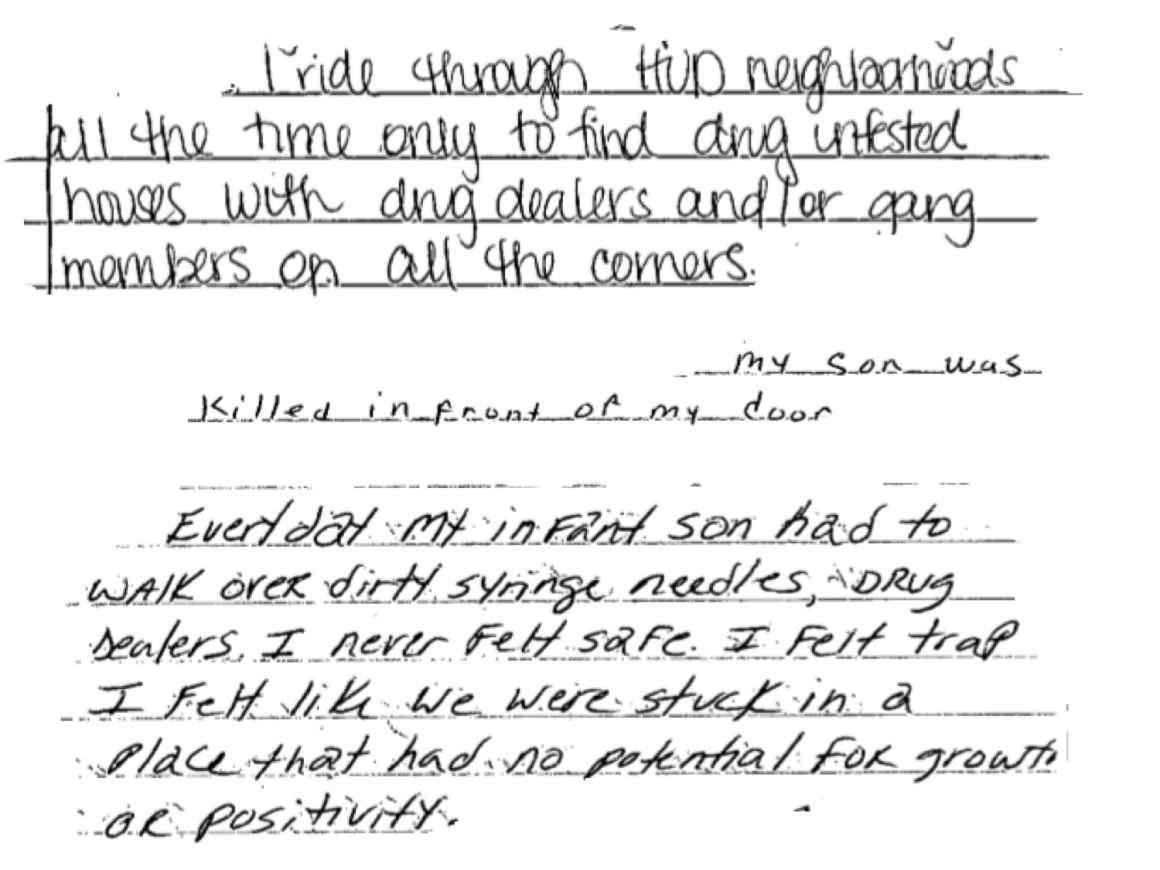 I ride through HUD neighborhoods
all the time only to find drug infested
houses with drug dealers and/or gang
members on all the corners.
my son was
Killed in front of my door
Everyday my infant son had to
WALK over dirty syringe needles, DRUG
Dealers. I never felt safe. I Felt trap
I felt like we were stuck in a
place that had no potential for growth
OR positivity.